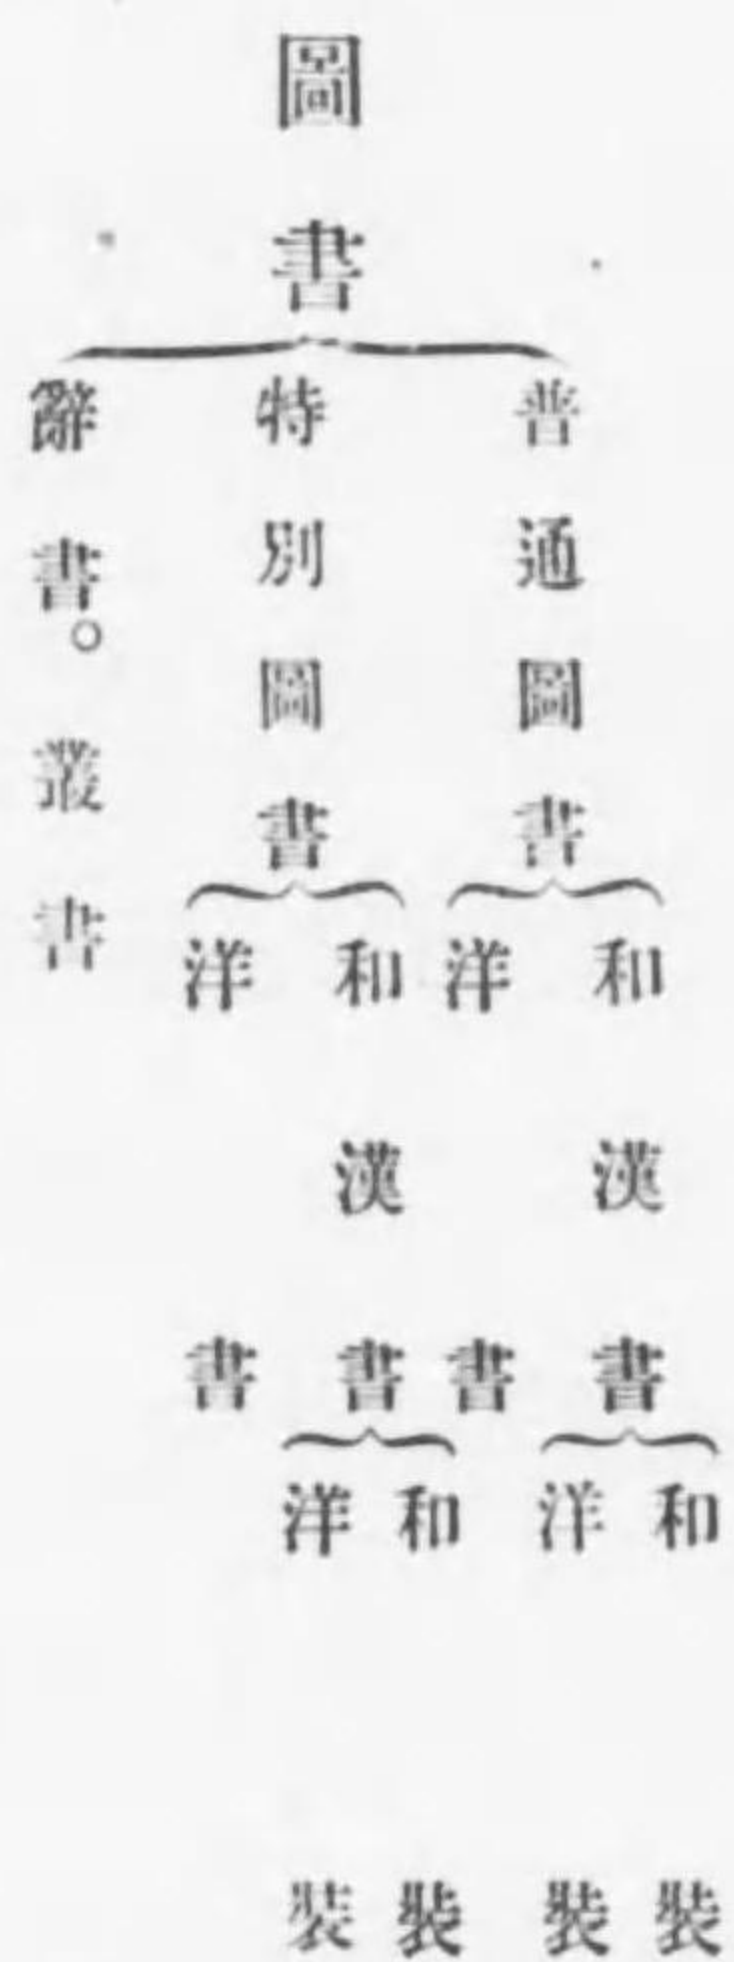 圖書
普通圖書
和漢書
和裝
洋裝
洋書
特別圖書
和漢書
和裝
洋裝
洋書
辭書。叢書